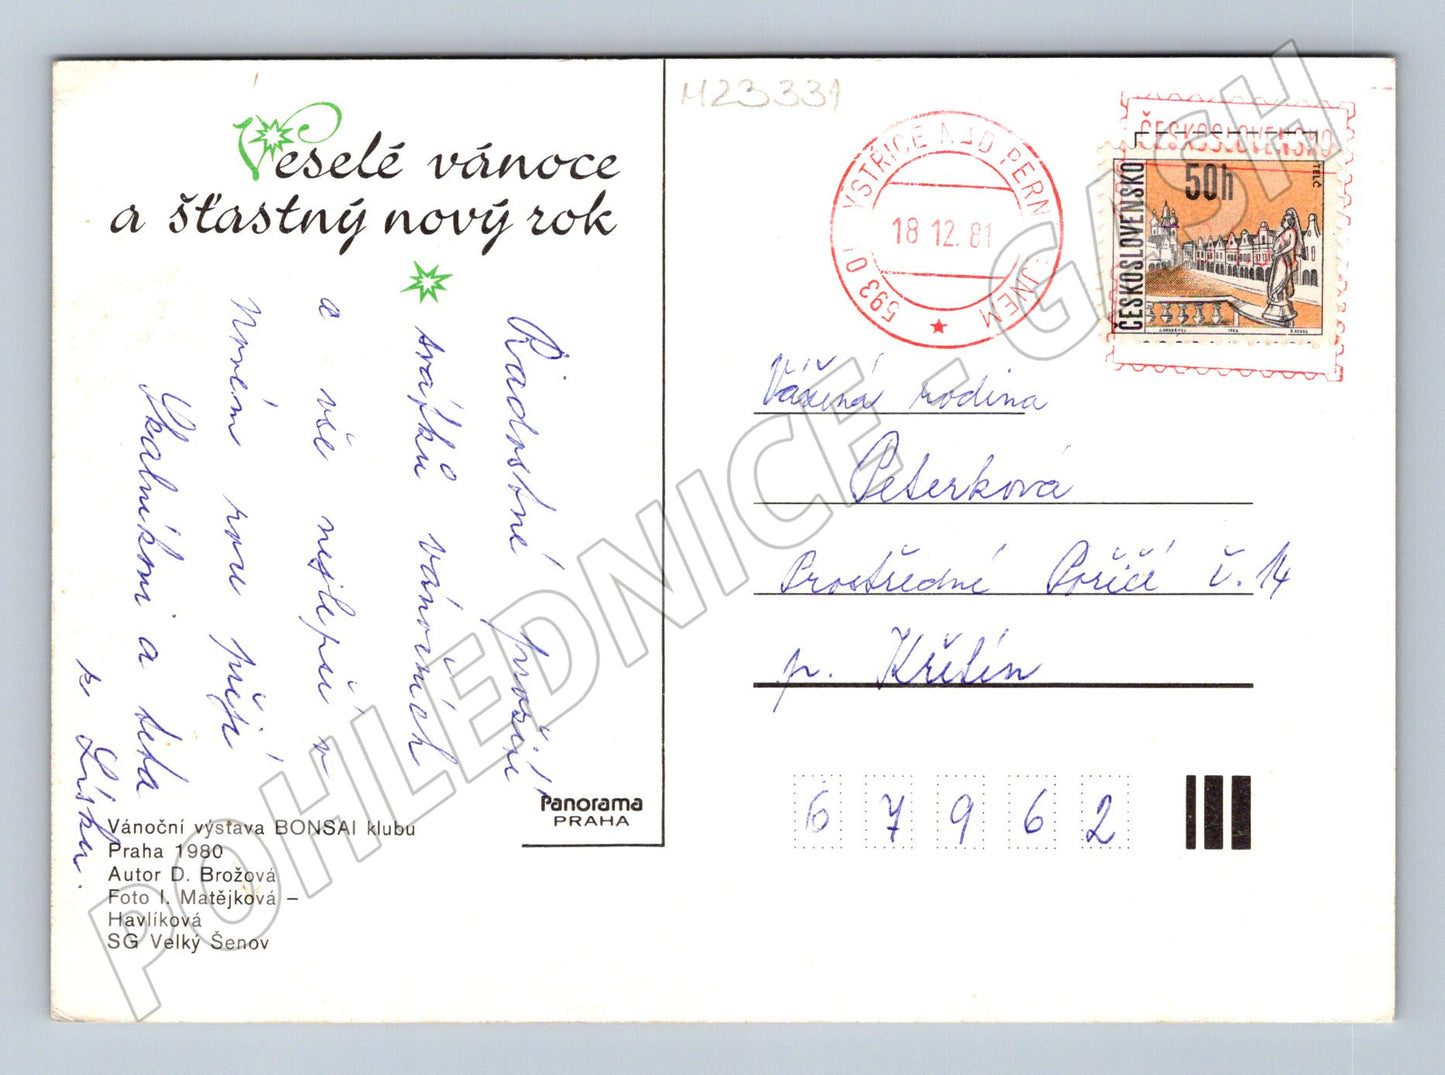 Veselé vánoce
a šťastný nový rok
Radostné prožití
svátků vánočních
a vše nejlepší v
Novém roce přejí
Skalníkovi a teta
z Lísku.
Panorama
PRAHA
Vánoční výstava BONSAI klubu
Praha 1980
Autor D. Brožová
Foto I. Matějková –
Havlíková
SG Velký Šenov
M23331
593 01 YSTŘICE NAD PERN JNEM
18 12. 81
ČESKOSLOVENSKO
ČESKOSLOVENSKO
50h
TELČ
Vážená rodina
Peterková
Prostředné Poříčí č. 14
p. Křetín
67962
POHLEDNICE - GASH